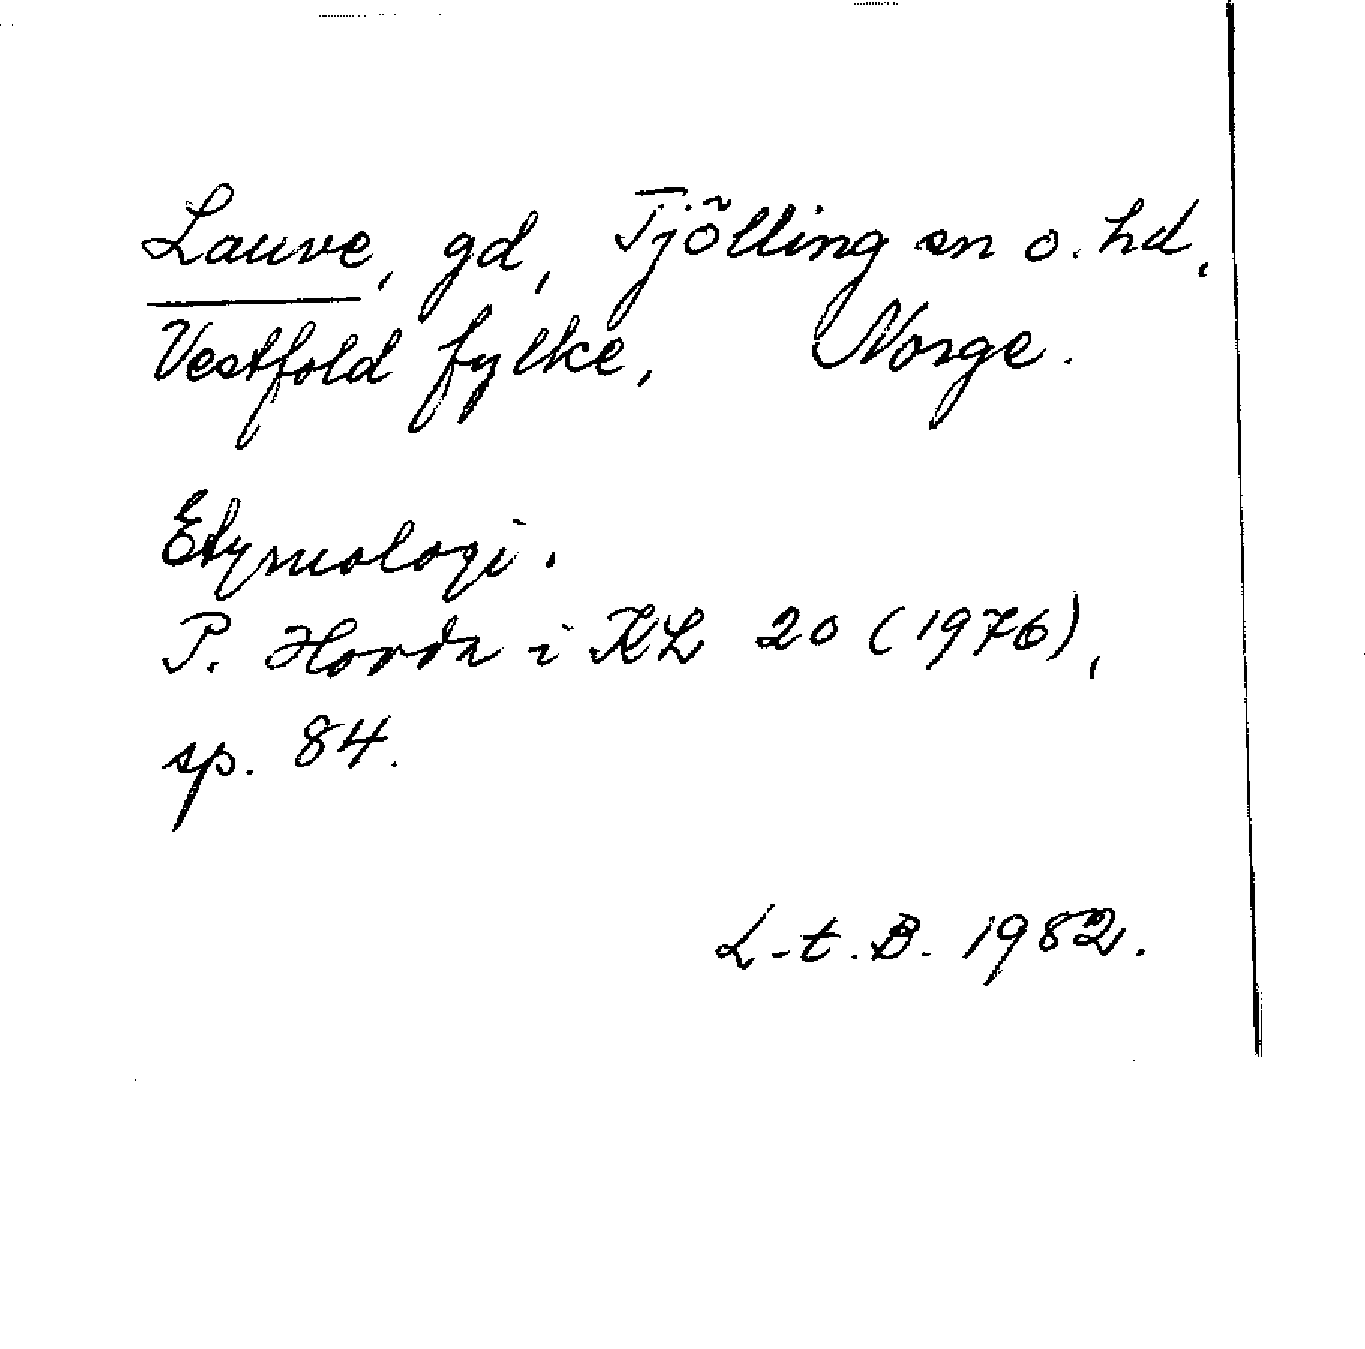 Lauve, gd, Tjölling sn o. hd,
Vestfold fylke, Norge.
Etymologi.
P. Hovda i KL 20 (1976),
sp. 84.
L-t. B. 1982.